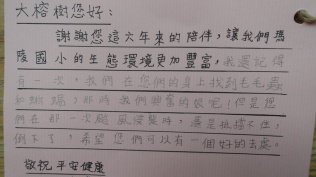 大榕樹您好：
謝謝您這六年來的陪伴，讓我們瑪
陵國小的生態環境更加豐富，我還記得
有一次，我們在您們的身上找到毛毛蟲
和蜘蛛，那時我們興奮的很呢！但是您
們在那一次颱風侵襲時，還是抵擋不住，
倒下了，希望您們可以有一個好的去處，
敬祝平安健康